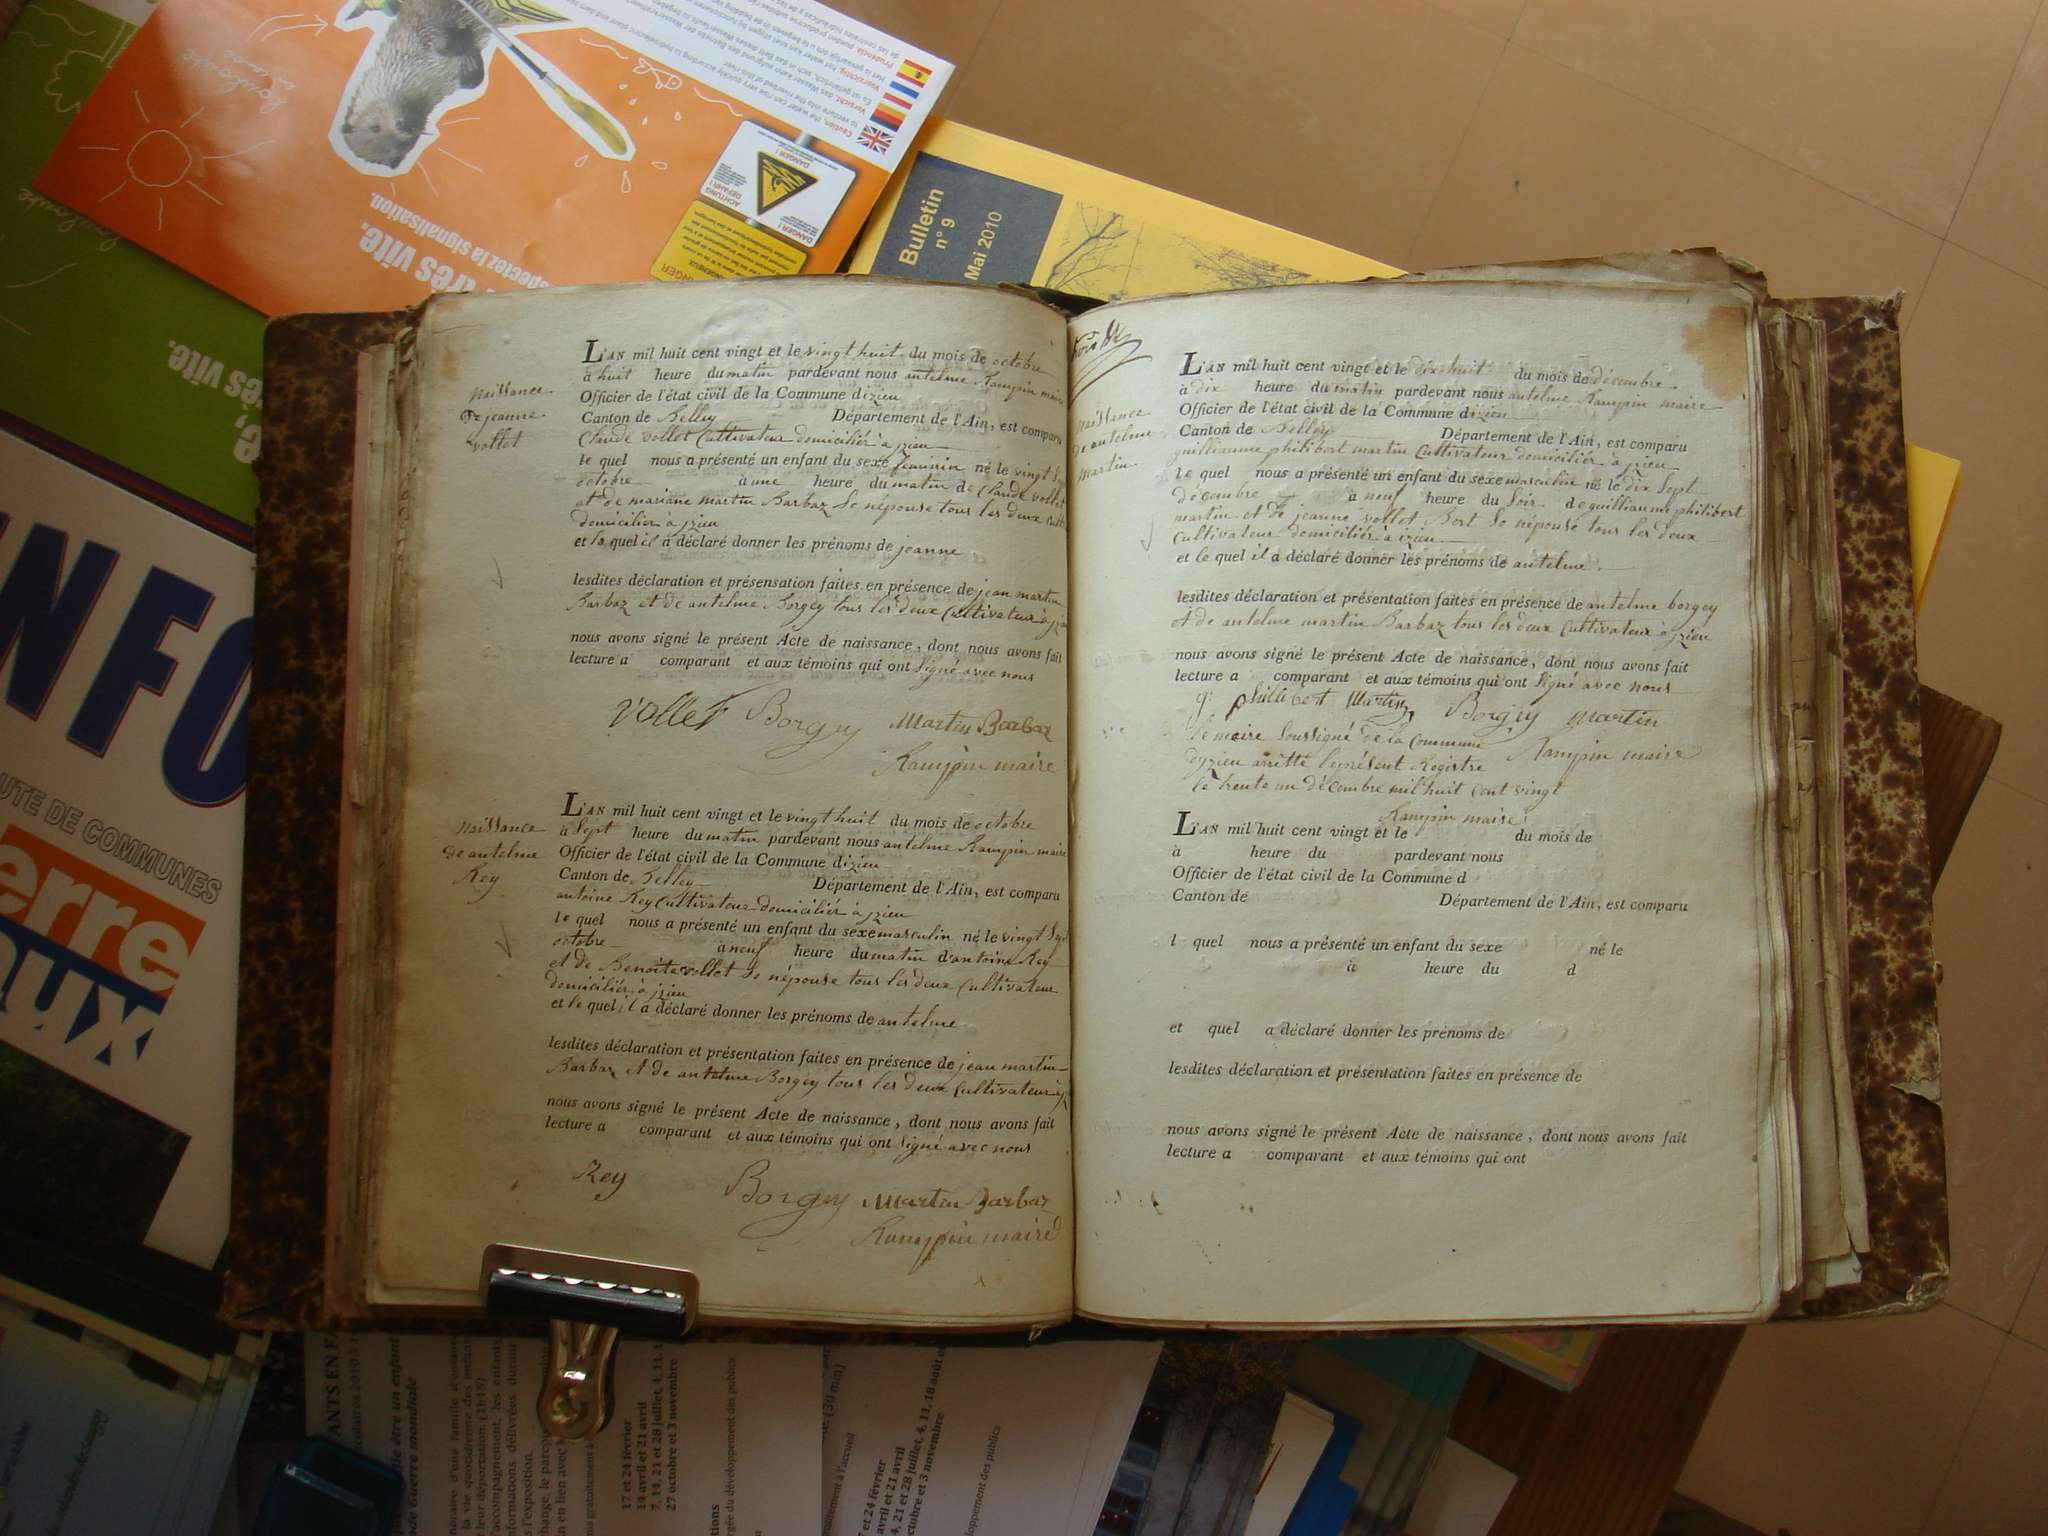 Prudencia, pueden producirse subidas
Caution, the water can rise very quickly according to hydroelectric plant and dam
to venture into the riverbed of this river.
DANGER !
ACHTUNG
GEFAHR !
DANGER !
très vite.
respectez la signalisation.
vite.
Bulletin
n° 9
Mai 2010
INFO
UTE DE COMMUNES
erre
aux
naissance
De jeanne
vollet
L'AN mil huit cent vingt et le vingt huit du mois de octobre
à huit heure du matin pardevant nous antelme Rampin maire
Officier de l'état civil de la Commune dizieu
Canton de Belley Département de l'Ain, est comparu
Claude vollet Cultivateur domiciliér à jzieu
le quel nous a présenté un enfant du sexe feminin né le vingt Sept
octobre à une heure du matin de Claude vollet
et de mariane martin Barbaz So népouse tous les deux Cultiv
domicilier à jzieu
et le quel il a déclaré donner les prénoms de jeanne
lesdites déclaration et présensation faites en présence de jean martin
Barbaz et de antelme Borgey tous les deux Cultivateur à jzieu
nous avons signé le présent Acte de naissance, dont nous avons fait
lecture a comparant et aux témoins qui ont Signé avec nous
vollet Borgey Martin Barbaz
Rampin maire
naissance
de antelme
Rey
L'AN mil huit cent vingt et le vingt huit du mois de octobre
à Sept heure du matin pardevant nous antelme Rampin maire
Officier de l'état civil de la Commune dizieu
Canton de Belley Département de l'Ain, est comparu
antoine Rey Cultivateur domiciliér à jzieu
le quel nous a présenté un enfant du sexe masculin né le vingt Sept
octobre a neuf heure du matin d'antoine Rey
et de Benoite vollet So népouse tous les deux Cultivateur
domiciliér à jzieu
et le quel il a déclaré donner les prénoms de antelme
lesdites déclaration et présentation faites en présence de jean martin
Barbaz et de antelme Borgey tous les deux Cultivateur à jz
nous avons signé le présent Acte de naissance, dont nous avons fait
lecture a comparant et aux témoins qui ont Signé avec nous
Rey Borgey Martin Barbaz
Rampin maire
naissance
de antelme
Martin
L'AN mil huit cent vingt et le dix huit du mois de décembre
à dix heure du matin pardevant nous antelme Rampin maire
Officier de l'état civil de la Commune dizieu
Canton de Belley Département de l'Ain, est comparu
guilliaume philibert martin Cultivateur domiciliér à jzieu
le quel nous a présenté un enfant du sexe masculin né le dix Sept
décembre à neuf heure du Soir de guilliaume philibert
martin et de jeanne vollet Bort So népouse tous les deux
Cultivateur domiciliér à izieu
et le quel il a déclaré donner les prénoms de antelme.
lesdites déclaration et présentation faites en présence de antelme borgey
et de antelme martin Barbaz tous les deux Cultivateur à jzieu
nous avons signé le présent Acte de naissance, dont nous avons fait
lecture a comparant et aux témoins qui ont Signé avec nous
g: philibert Martin Borgey Martin
le maire Soussigné de la Commune Rampin maire
dyzieu arritté le présent Registre
le trente un décembre mil huit cent vingt
Rampin maire
L'AN mil huit cent vingt et le du mois de
à heure du pardevant nous
Officier de l'état civil de la Commune d
Canton de Département de l'Ain, est comparu
l quel nous a présenté un enfant du sexe né le
à heure du d
et quel a déclaré donner les prénoms de
lesdites déclaration et présentation faites en présence de
nous avons signé le présent Acte de naissance, dont nous avons fait
lecture a comparant et aux témoins qui ont
17 et 24 février
14 avril et 21 avril
7, 14, 21 et 28 juillet, 4, 11, 1
27 octobre et 3 novembre
7 et 24 février
avril et 21 avril
4, 21 et 28 juillet, 4, 11, 18 août e
octobre et 3 novembre